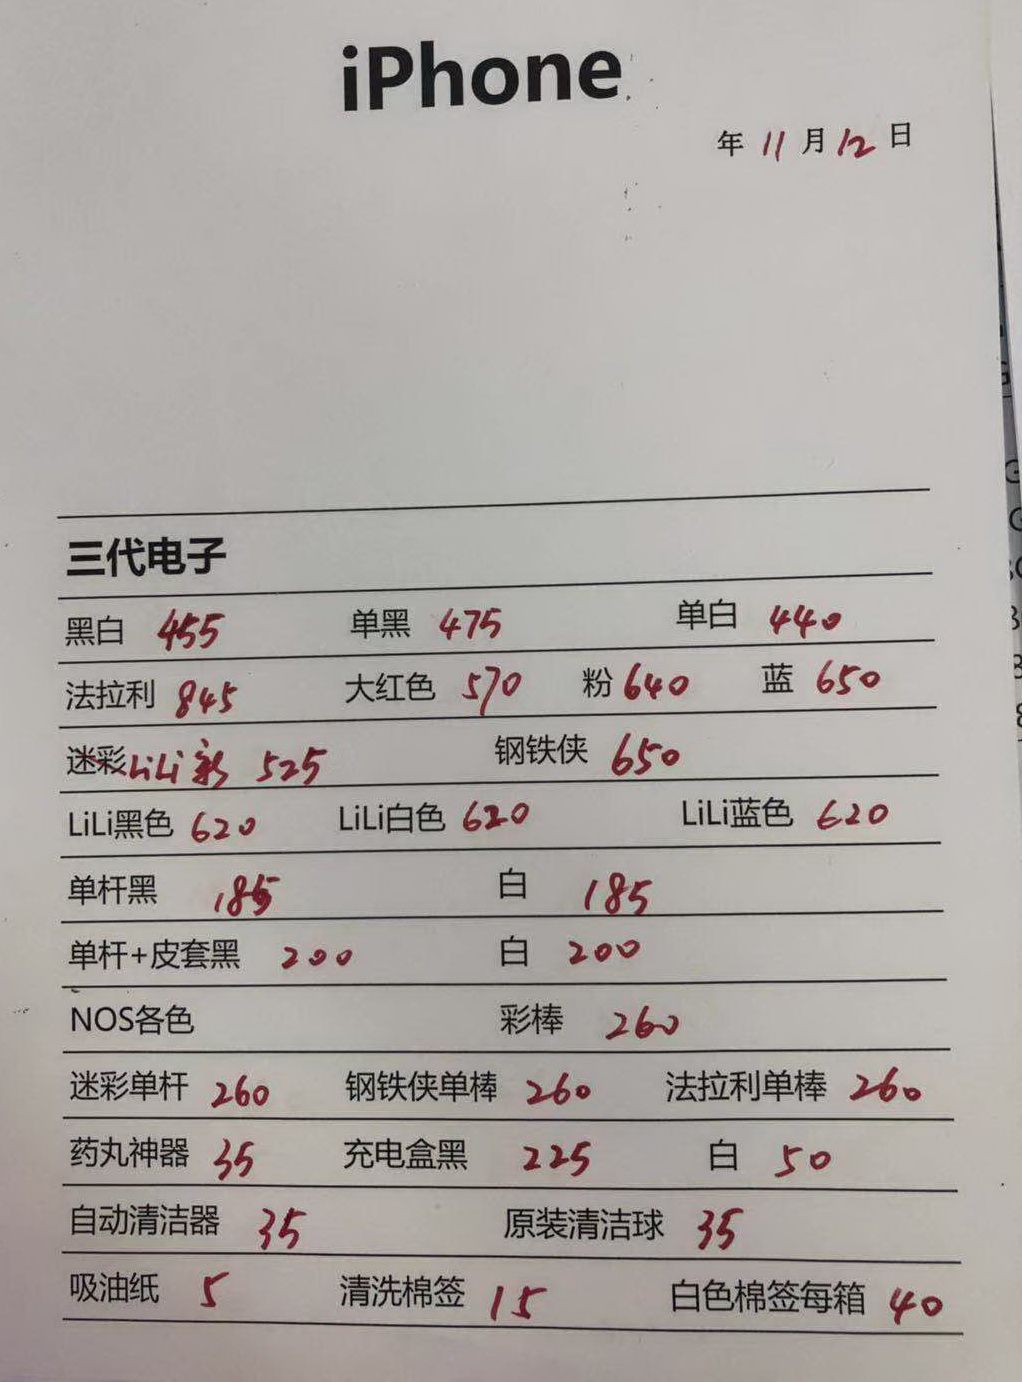 iPhone
年 11 月 12 日
三代电子
黑白 455 单黑 475 单白 440
法拉利 845 大红色 570 粉 640 蓝 650
迷彩 LiLi彩 525 钢铁侠 650
LiLi黑色 620 LiLi白色 620 LiLi蓝色 620
单杆黑 185 白 185
单杆+皮套黑 200 白 200
NOS各色 彩棒 260
迷彩单杆 260 钢铁侠单棒 260 法拉利单棒 260
药丸神器 35 充电盒黑 225 白 50
自动清洁器 35 原装清洁球 35
吸油纸 5 清洗棉签 15 白色棉签每箱 40